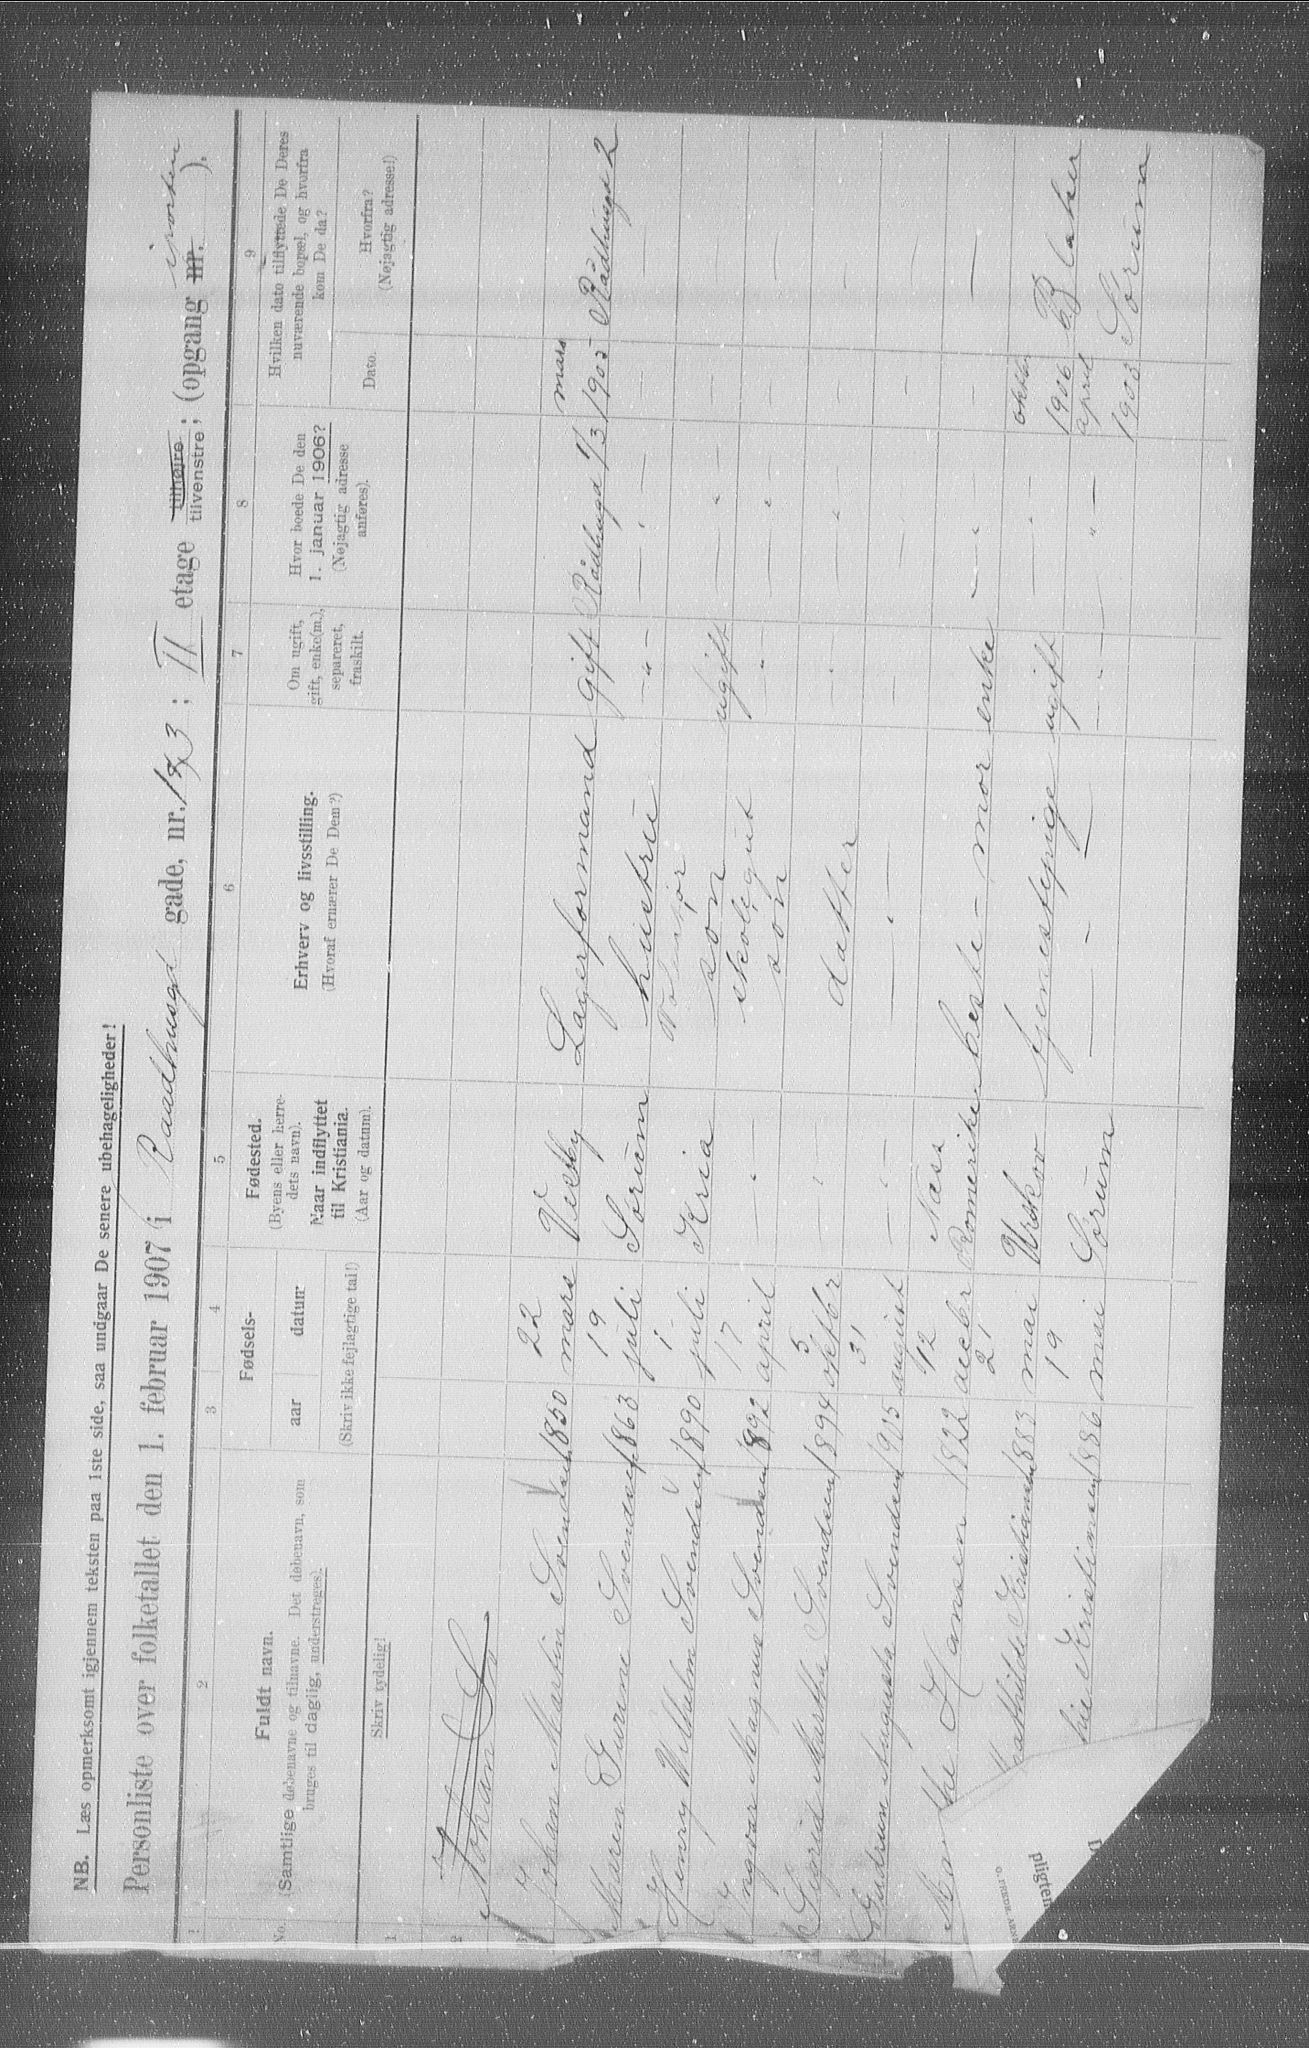 NB. Læs opmerksomt igjennem teksten paa 1ste side, saa undgaar De senere ubehageligheder!
Personliste over folketallet den 1. februar 1907 i Raadhusgd gade, nr. 13 ; II etage tilhøjre tilvenstre; (opgang nr. iporten ).
1 2 3 4 5 6 7 8 9
No. Fuldt navn. (Samtlige døbenavne og tilnavne. Det døbenavn, som bruges til daglig, understreges). Skriv tydelig!
Fødsels- aar datum (Skriv ikke fejlagtige tal!)
Fødested. (Byens eller herredets navn). Naar indflyttet til Kristiania. (Aar og datum).
Erhverv og livsstilling. (Hvoraf ernærer De Dem?)
Om ugift, gift, enke(m.), separeret, fraskilt.
Hvor boede De den 1. januar 1906? (Nøjagtig adresse anføres).
Hvilken dato tilflyttede De Deres nuværende bopæl, og hvorfra kom De da?
Dato. Hvorfra? (Nøjagtig adresse!)
1
2 Johan
Johan Martin Svendsen 1850 22 mars Vestby Lagerformand gift Rådhusgd 1/3 mars 1905 Rådhusgd 2
Maren Gurine Svendsen 1863 19 juli Sørum hustru — " — — " — — —
Henry Vilhelm Svendsen 1890 1 juli Kria søn ugift — " — — —
Ingvar Magnus Svendsen 1892 17 april — " — skolegut søn " — " — — —
Sigrid Martha Svendsen 1894 5 oktbr — " — datter " — " — — —
Gudrun Augusta Svendsen 1905 31 august — " — — " — — — —
Marthe Hansen 1822 12 decbr Næss Romerike beste-mor enke — " — — —
Mathilde Kristiansen 1883 21 mai Urskov tjenestepige ugift — " — oktbr 1906 Blaker
hie Kristiansen 1886 19 mai Sørum — " — — " — — " — april 1905 Sørum
pligten